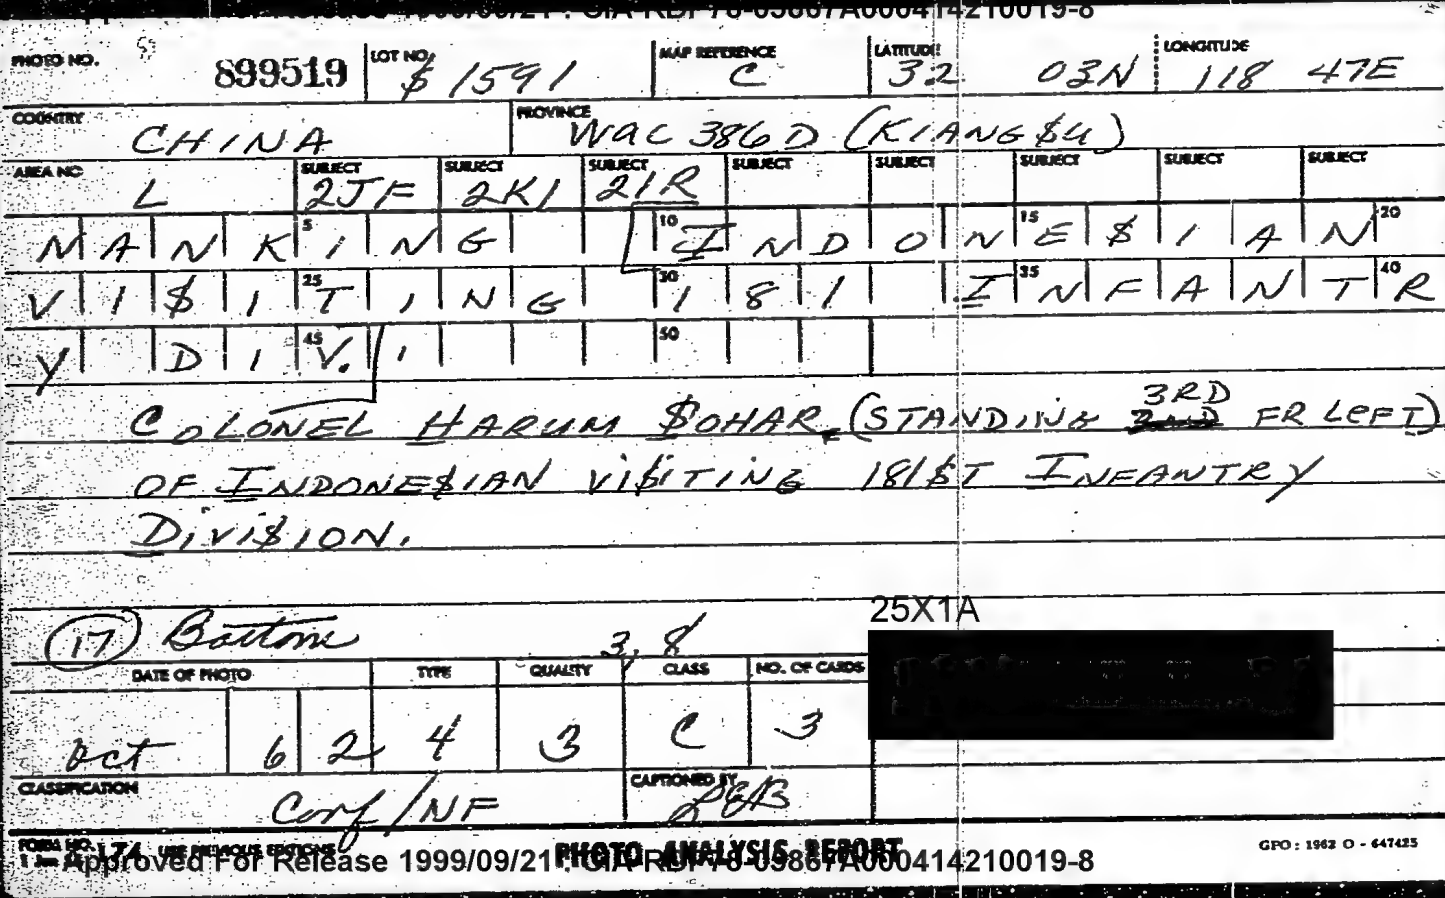 Approved For Release 1999/09/21 : CIA-RDP78-03867A000414210019-8
PHOTO NO. 899519 LOT NO. $ 1591 MAP REFERENCE C LATITUDE 32 03N LONGITUDE 118 47E
COUNTRY CHINA PROVINCE WAC 386D (KIANG$U)
AREA NO L SUBJECT 2JF SUBJECT 2K1 SUBJECT 21R SUBJECT SUBJECT SUBJECT SUBJECT SUBJECT
NANKING INDONE$IAN 5 10 15 20
VI$ITING 181 INFANTR 25 30 35 40
Y DIV. 45 50
COLONEL HARUM $OHAR, (STANDING 3RD FR LEFT)
OF INDONE$IAN VI$ITING 181$T INFANTRY
DIVI$ION.
17 Bottom 3,8
25X1A
DATE OF PHOTO TYPE QUALITY CLASS NO. OF CARDS
Oct 62 4 3 C 3
CLASSIFICATION Conf/NF CAPTIONED BY
FORM NO. 174 USE PREVIOUS EDITIONS PHOTO ANALYSIS REPORT GPO : 1962 O - 647425
Approved For Release 1999/09/21 : CIA-RDP78-03867A000414210019-8